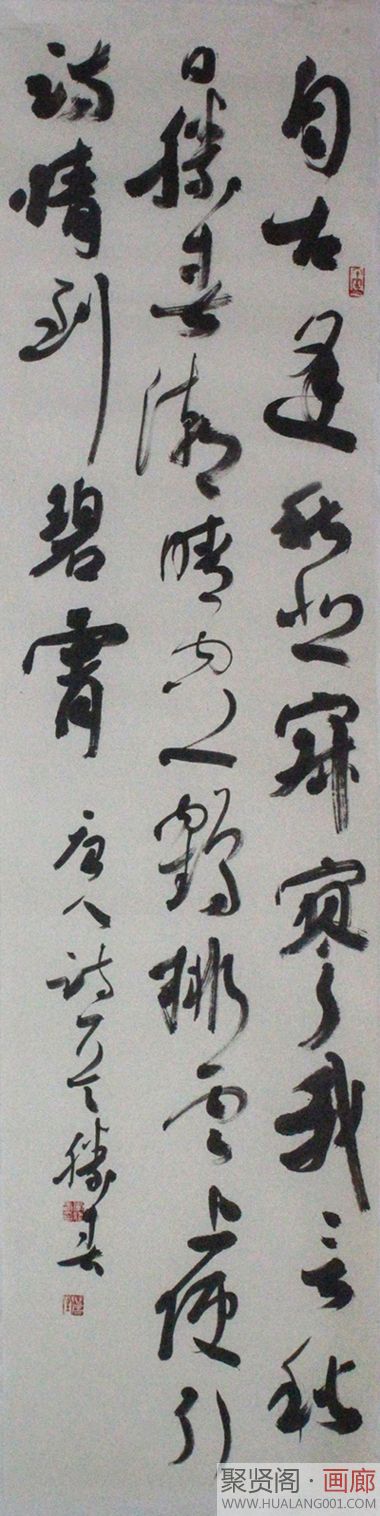 自古逢秋悲寂寥我言秋
日勝春潮晴空一鶴排雲上便引
詩情到碧霄
唐人詩一首勝春
聚贤阁·画廊
WWW.HUALANG001.COM